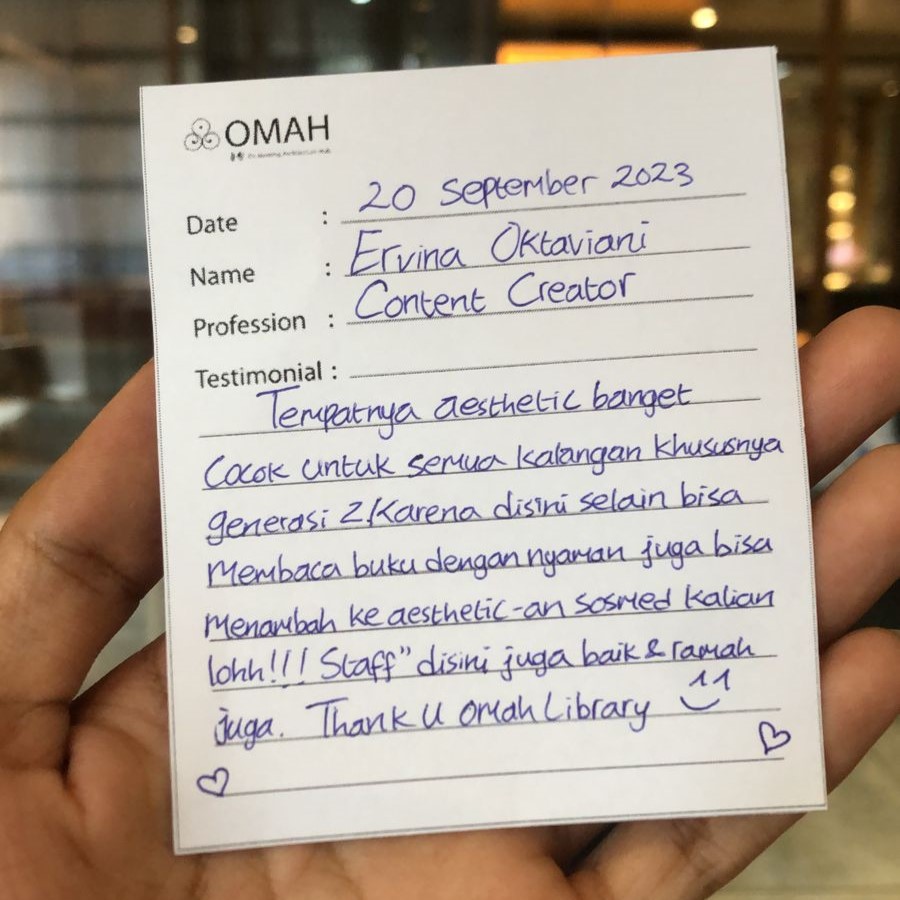 OMAH
Date : 20 September 2023
Name : Ervina Oktaviani
Profession : Content Creator
Testimonial :
Tempatnya aesthetic banget
Cocok untuk semua kalangan khususnya
generasi Z, Karena disini selain bisa
Membaca buku dengan nyaman juga bisa
Menambah ke aesthetic-an sosmed Kalian
lohh!!! Staff" disini juga baik & ramah
juga. Thank U Omah Library